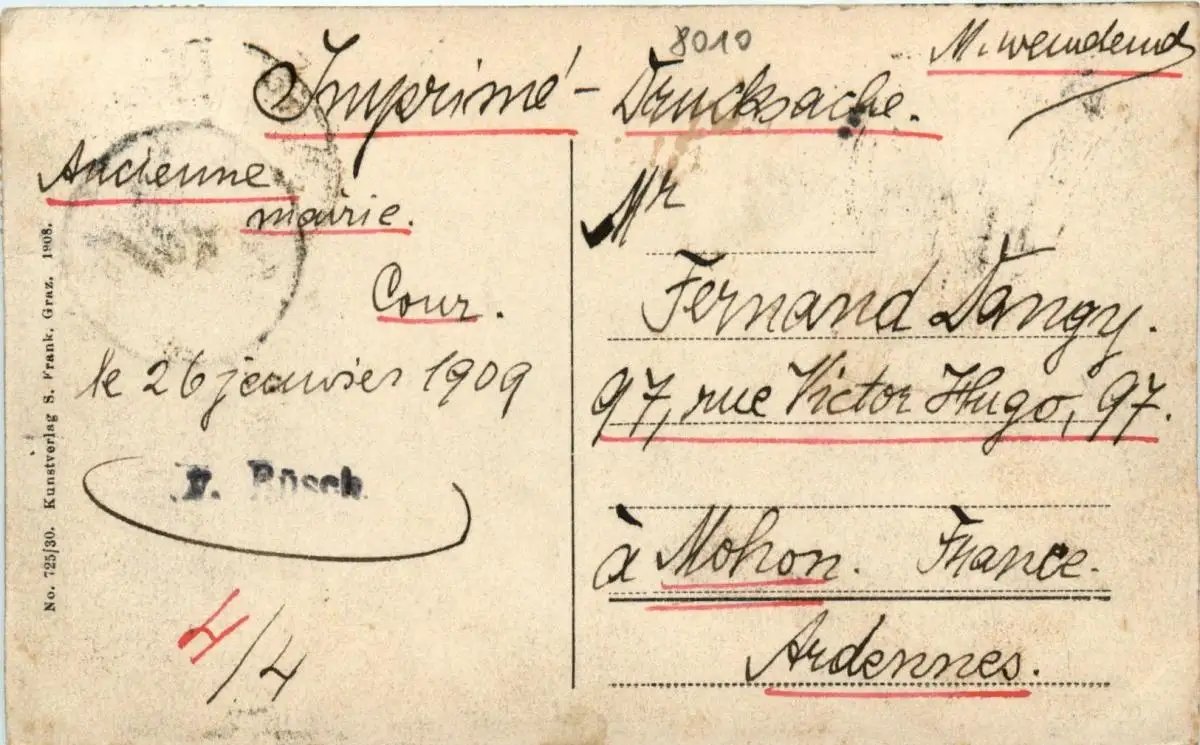 8010
Imprimé - Drucksache.
Ancienne
mairie.
Cour.
le 26 janvier 1909
F. Rüsch
4/4
No. 725/30. Kunstverlag S. Frank, Graz, 1908.
Mr
Fernand Dangy.
97, rue Victor Hugo, 97.
à Mohon. France.
Ardennes.